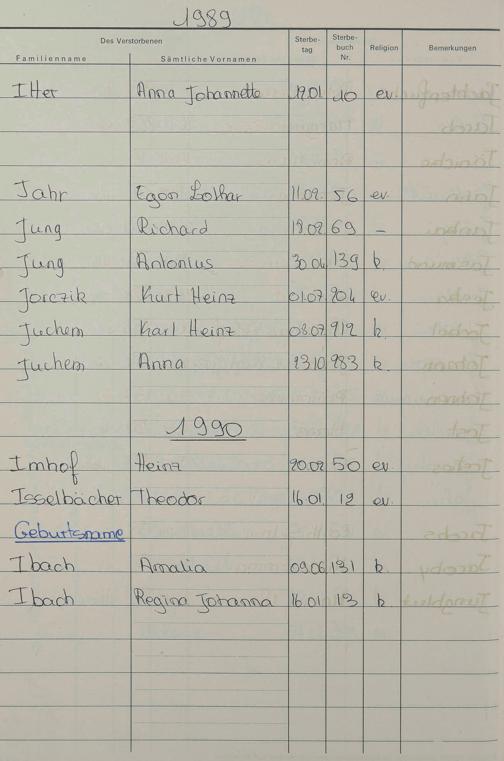 1989
Des Verstorbenen Sterbe- Sterbe- Religion Bemerkungen
Familienname Sämtliche Vornamen tag buch Nr.
Itter Anna Johannette 19.01 10 ev.
Jahr Egon Lothar 11.02. 56 ev.
Jung Richard 19.02 69 -
Jung Antonius 30.04 139 k.
Jorczik Kurt Heinz 01.07. 204 ev.
Juchem Karl Heinz 08.07 212 k.
Juchem Anna 23.10 283 k.
1990
Imhof Heinz 20.02 50 ev.
Isselbächer Theodor 16.01. 12 ev.
Geburtsname
Ibach Amalia 09.06 131 k.
Ibach Regina Johanna 16.01 13 k.